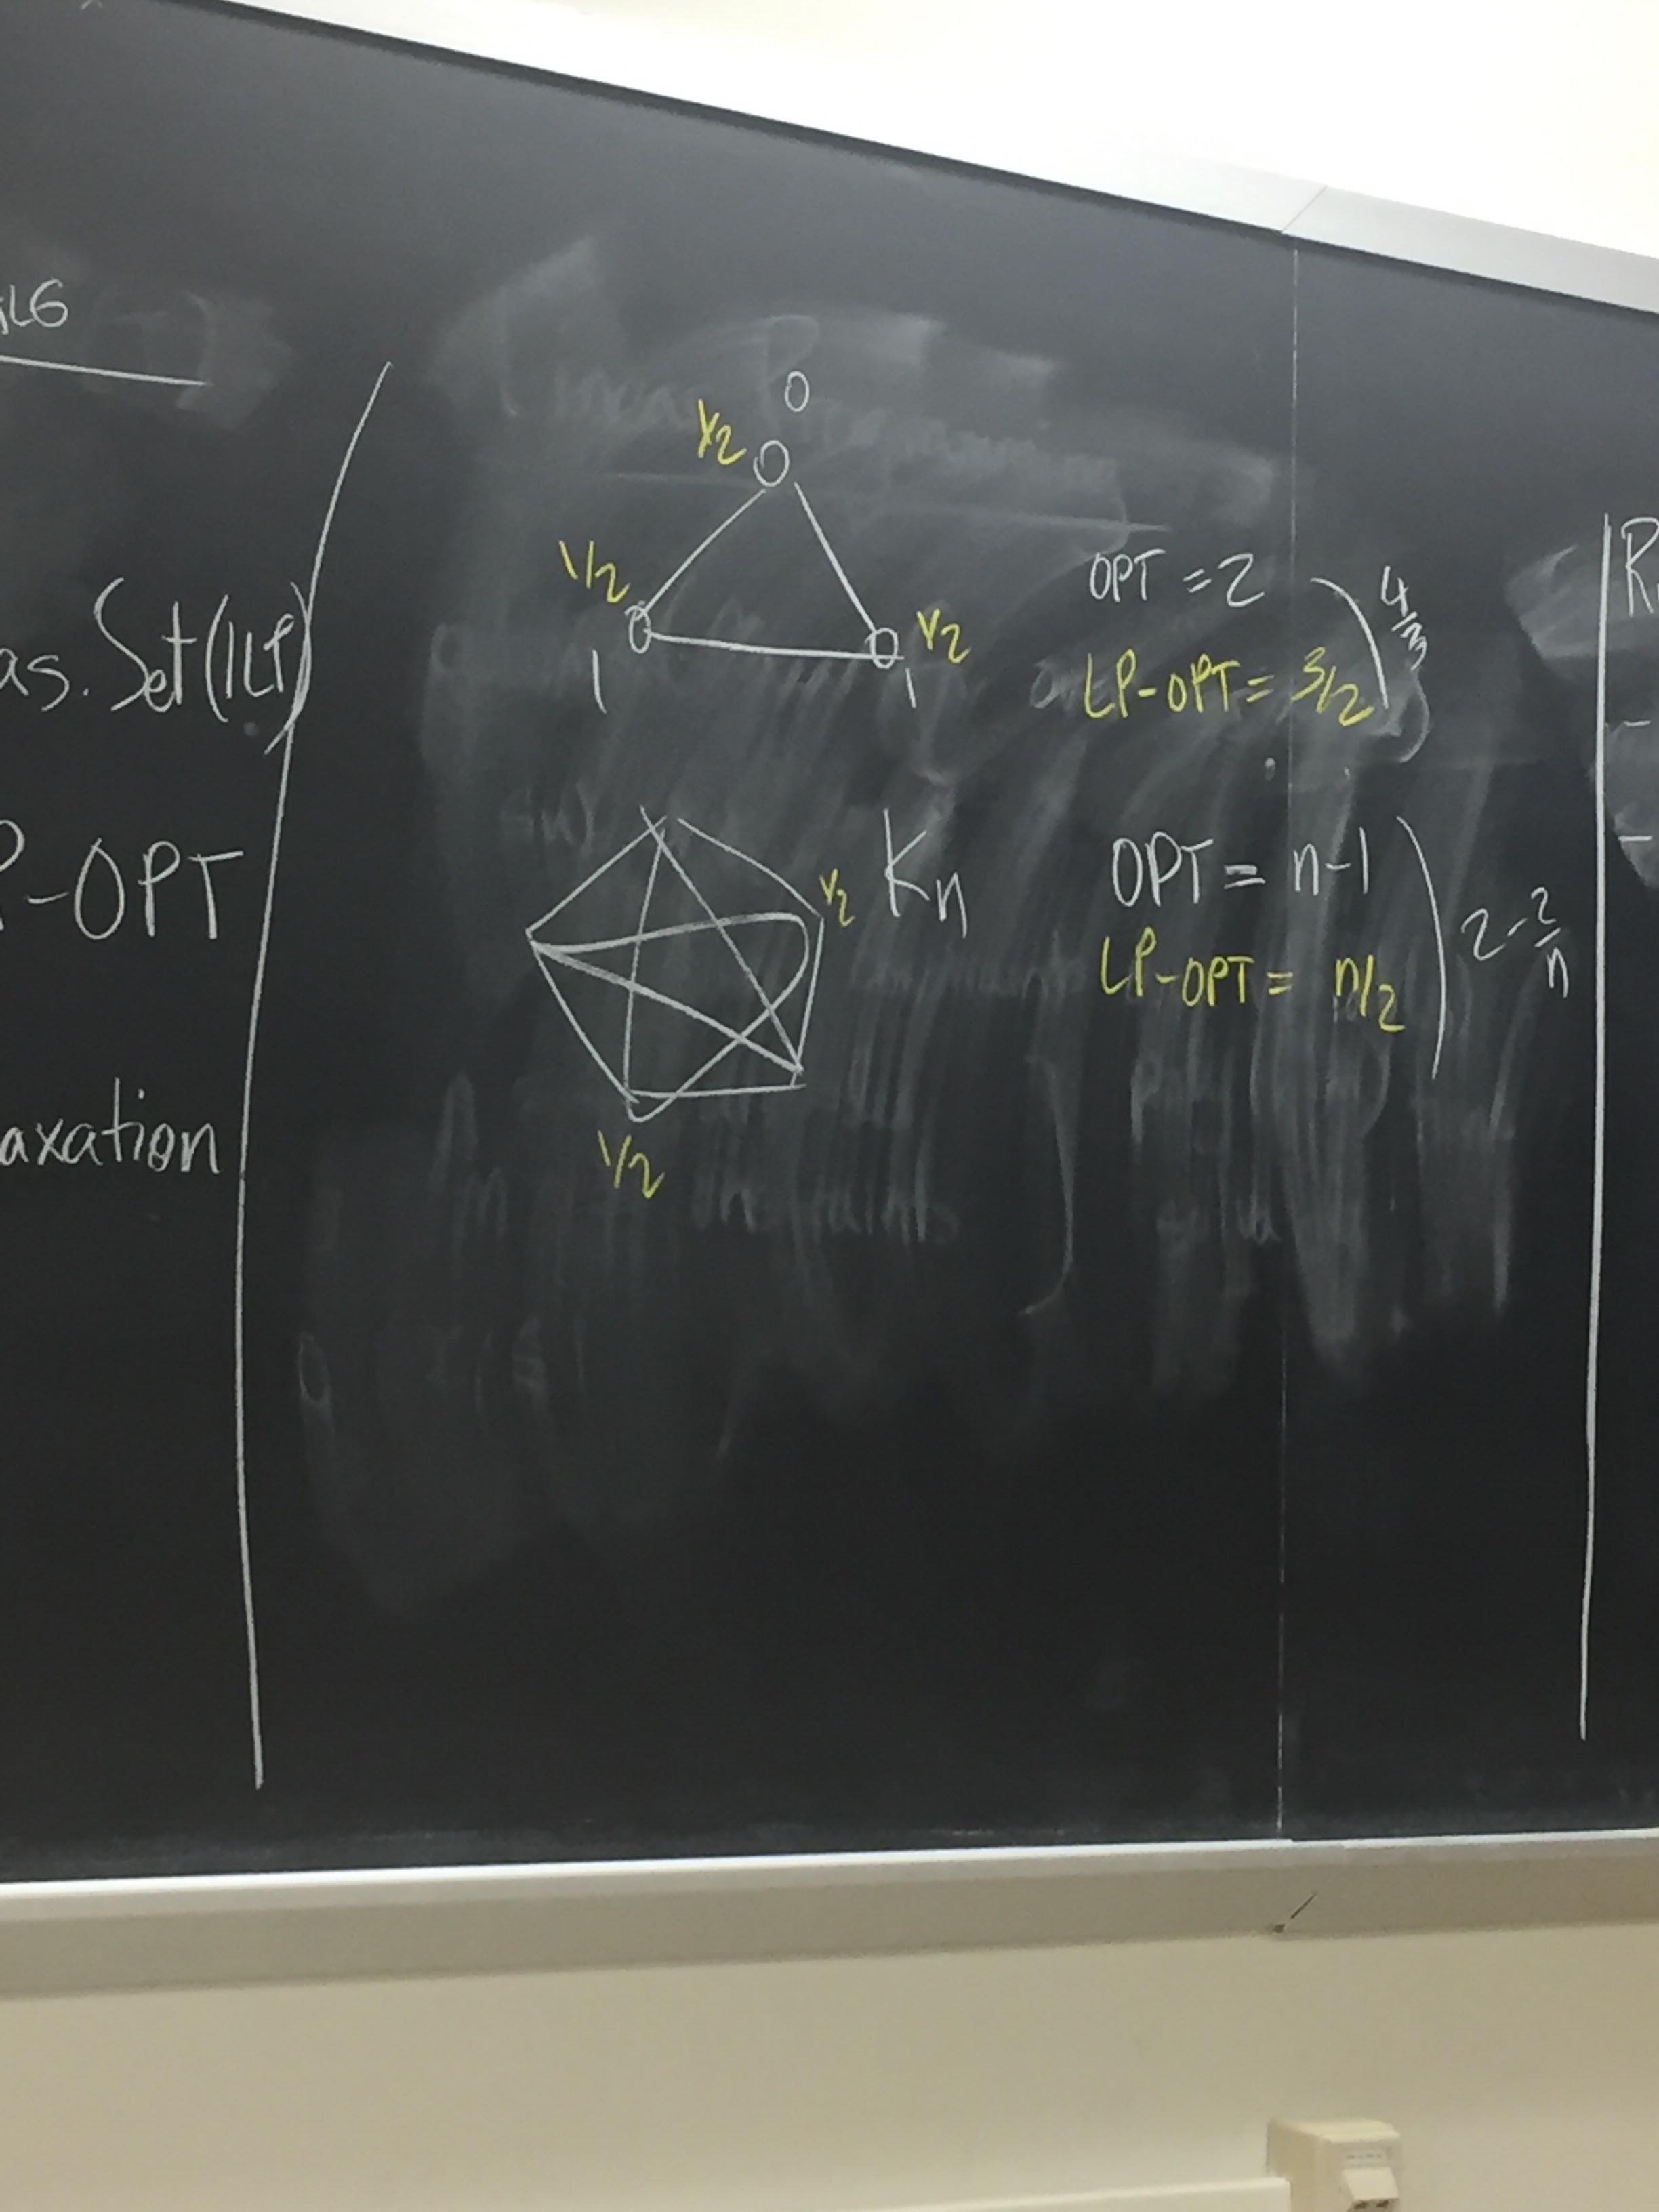 as. Set(ILP)
P-OPT
axation
0
1/2
1/2
1/2
1
1
OPT = 2
LP-OPT = 3/2
4/3
1/2
Kn
1/2
OPT = n-1
LP-OPT = n/2
2 - 2/n
R
-
-